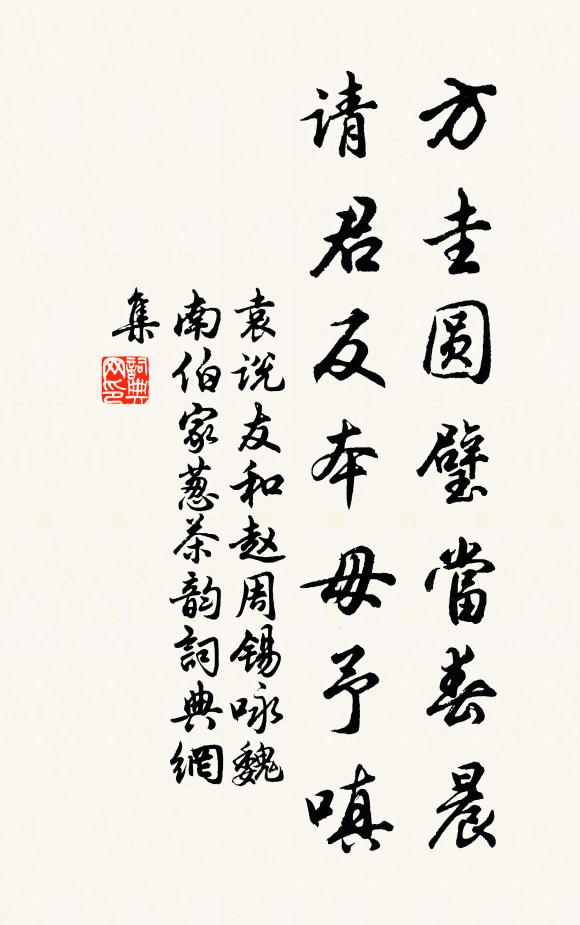 方圭圆璧當春晨
请君反本毋予嗔
袁说友和赵周锡咏魏
南伯家葱茶韵詞典網
集
詞典网印